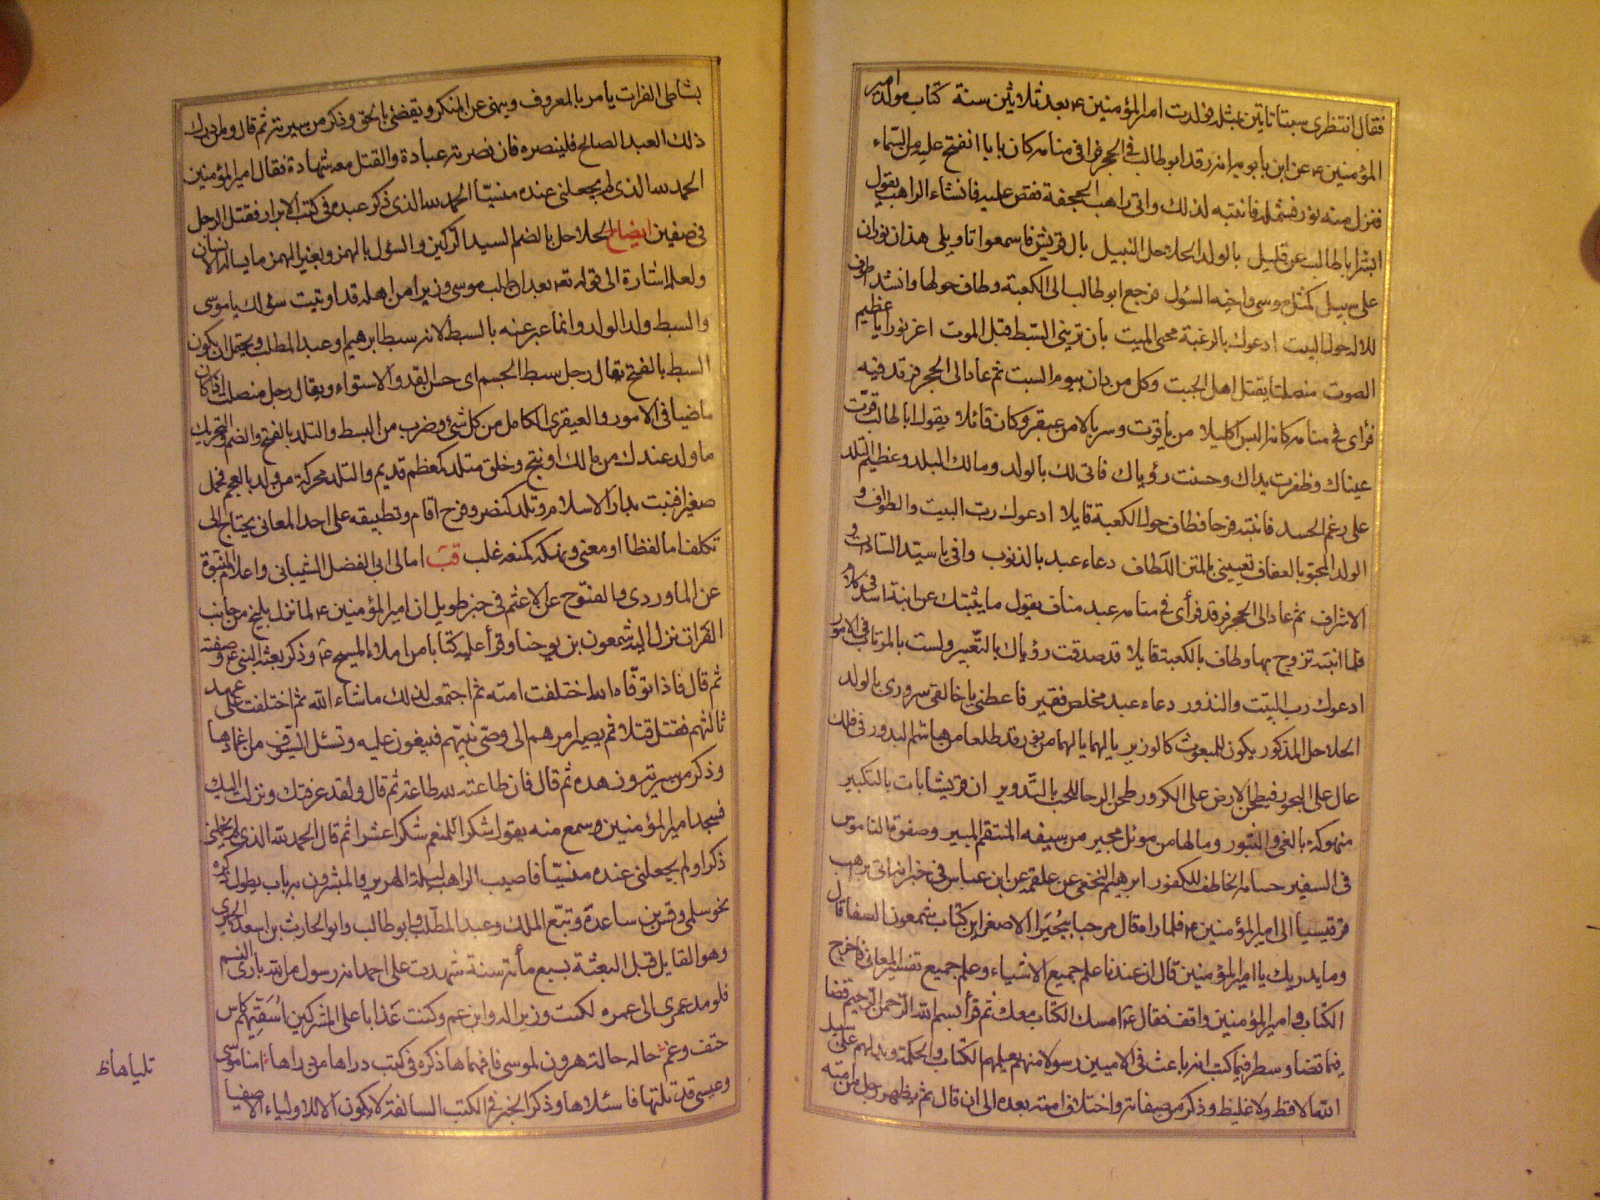 فقال انتظرى سبتا تاتين بمثله فولدت امير المؤمنين ع بعد ثلاثين سنة كتاب مولد امير
المؤمنين ع عن ابن بابويه انه رقد ابو طالب فى الحجر فراى فى منامه كان بابا انفتح عليه من السماء
فنزل منه نور فشمله فانتبه لذلك واتى راهب الجحفة فقص عليه فانشاء الراهب يقول
ابشر ابا طالب عن قليل بالولد الحلاحل النبيل يال قريش فاسمعوا تاويلى هذان نوران
على سبيل كمثل موسى واخيه السؤل فرجع ابو طالب الى الكعبة وطاف حولها وانشد اطوف
للاله حول البيت ادعوك بالرغبة محيى الميت بان ترينى السبط قبل الموت اغر نورا يا عظيم
الصوت منصلتا يقتل اهل الجبت وكل من دان بيوم السبت ثم عاد الى الحجر فرقد فيه
فرأى فى منامه كانه البس اكليلا من ياقوت وسربالا من عبقر وكان قائلا يقول ابا طالب قرت
عيناك وظفرت يداك وحسنت رؤياك فاتى لك بالولد ومالك البلد وعظيم التلد
على رغم الحسد فانتبه فرحا فطاف حول الكعبة قايلا ادعوك رب البيت والطواف و
الولد المحبو بالعفاف تعيننى بالمنن اللطاف دعاء عبد بالذنوب وافى يا سيد السادات و
الاشراف ثم عاد الى الحجر فرقد فرأى فى منامه عبد مناف يقول ما يثبتك عن ابنة اسد فى كلام
فلما انتبه تزوج بها وطاف بالكعبة قايلا قد صدقت رؤياك بالتعبير ولست بالمرتاب فى الامور
ادعوك رب البيت والنذور دعاء عبد مخلص فقير فاعطنى يا خالقى سرورى بالولد
الحلاحل المذكور يكون للمبعوث كالوزير يا لهما يا لهما من نور قد طلعا من هاشم البدور فى فلك
عال على البحور فيطحن الارض على الكرور طحن الرحا للحب بالتدوير ان قريشا بات بالتكبير
منهوكة بالغى والثبور وما لها من موئل مجير من سيفه المنتقم المبير وصفوة الناموس
فى السفير حسامه الخاطف للكفور ابرهيم النخعى عن علقمة عن ابن عباس فى خبر انه اتى راهب
قرقيسيا الى امير المؤمنين ع فلما راه قال مرحبا ببحيرا الاصغر اين كتاب شمعون الصفا قال
وما يدريك يا امير المؤمنين قال ان عندنا علم جميع الاشياء وعلم جميع تفسير المعانى فاخرج
الكتاب وامير المؤمنين واقف فقال ع امسك الكتاب معك ثم قرأ بسم الله الرحمن الرحيم قضا
فيما قضا وسطر فيما كتب انه باعث فى الاميين رسولا منهم يعلمهم الكتاب والحكمة ويدلهم على سبيل
الله لا فظ ولا غليظ وذكر من صفاته واختلاف امته بعده الى ان قال ثم يظهر رجل من امته
بشاطى الفرات يامر بالمعروف وينهى عن المنكر ويقضى بالحق وذكر من سيرته ثم قال ومن ادرك
ذلك العبد الصالح فلينصره فان نصرته عبادة والقتل معه شهادة فقال امير المؤمنين
الحمد لله الذى لم يجعلنى عنده منسيا الحمد لله الذى ذكر عبده فى كتب الابرار فقتل الرجل
فى صفين ايضاح الحلاحل بالضم السيد الركين والسؤل بالهمز وبغير الهمز ما يساله الانسان
ولعله اشارة الى قوله تع بعد ان طلب موسى وزيرا من اهله قد اوتيت سؤلك يا موسى
والسبط ولد الولد وانما عبر عنه بالسبط لانه سبط ابرهيم وعبد المطلب ويحتمل ان يكون
السبط بالفتح يقال رجل سبط الجسم اى حسن القد والاستواء ويقال رجل منصلت اذا كان
ماضيا فى الامور والعبقرى الكامل من كل شئ وضرب من البسط والتلد بالفتح والضم والتحريك
ما ولد عندك من مالك او نتج وخلق متلد كمعظم قديم والتلد محركة من ولد بالعجم فحمل
صغيرا فنبت ببلاد الاسلام وتلد كنصر وفرح اقام وتطبيقه على احد المعانى يحتاج الى
تكلف اما لفظا او معنى ونهكه كمنعه غلب قب امالى ابى الفضل الشيبانى واعلام النبوة
عن الماوردى والفتوح عن الاعثم فى خبر طويل ان امير المؤمنين ع لما نزل بليخ من جانب
الفرات نزل اليه شمعون بن يوحنا وقرأ عليه كتابا من املاء المسيح ع وذكر بعثة النبى ع وصفته
ثم قال فاذا توفاه الله اختلفت امته ثم اجتمعت لذلك ما شاء الله ثم اختلفت على عهد
ثالثهم فقتل قتلا ثم يصير امرهم الى وصى نبيهم فيبغون عليه وتسل السيوف من اغمادها
وذكر من سيرته وزهده ثم قال فان طاعته لله طاعة ثم قال ولقد عرفتك ونزلت اليك
فسجد امير المؤمنين وسمع منه يقول شكرا للمنعم شكرا عشرا ثم قال الحمد لله الذى لم يخملنى
ذكرا ولم يجعلنى عنده منسيا فاصيب الراهب ليلة الهرير والمبشرون به باب يطول ذكره
نحو سلمى وقس بن ساعدة وتبع الملك وعبد المطلب وابو طالب وابو الحارث بن اسعد الحميرى
وهو القايل قبل البعثة بسبع مأة سنة شهدت على احمد انه رسول من الله بارى النسم
فلو مد عمرى الى عمره لكنت وزيرا له وابن عم وكنت عذابا على المشركين اسقيهم كاس
حتف وغم حاله حالة هرون لموسى فافهماها ذكره فى كتب دراها من دراها امتا موسى
وعيسى قد تلتها فاسئلاها وذكر الخبر فى الكتب السالفة لا يكون الا للاولياء الاصفيا
تلياهاظ